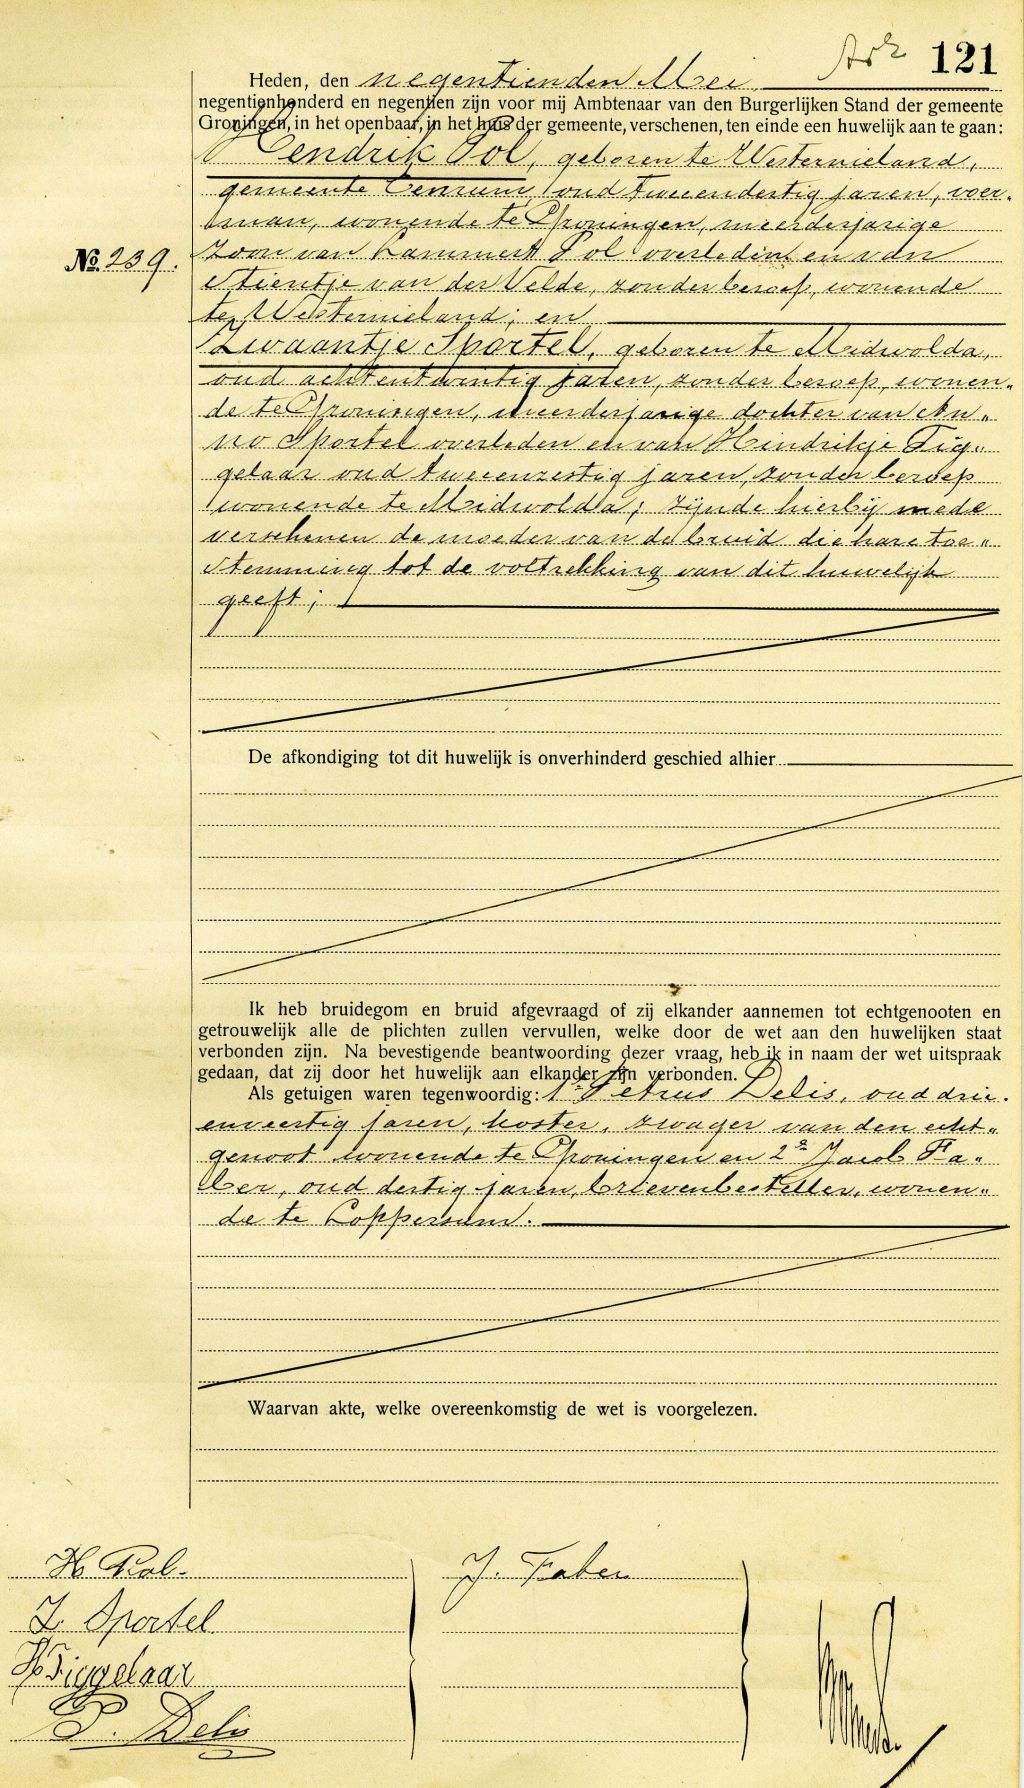 121
Heden, den negentienden Mei
negentienhonderd en negentien zijn voor mij Ambtenaar van den Burgerlijken Stand der gemeente
Groningen, in het openbaar, in het huis der gemeente, verschenen, ten einde een huwelijk aan te gaan:
Hendrik Pol, geboren te Westernieland,
gemeente Eenrum, oud tweeendertig jaren, voer-
man, wonende te Groningen, meerderjarige
No. 239.
zoon van Lammert Pol overleden en van
Stientje van der Velde, zonder beroep, wonende
te Westernieland; en
Zwaantje Sportel, geboren te Midwolda,
oud achtentwintig jaren, zonder beroep, wonen-
de te Groningen, meerderjarige dochter van An-
no Sportel overleden en van Hindrikje Tig-
gelaar oud tweeenzestig jaren, zonder beroep
wonende te Midwolda; zijnde hierbij mede
verschenen de moeder van de bruid die hare toe-
stemming tot de voltrekking van dit huwelijk
geeft;
De afkondiging tot dit huwelijk is onverhinderd geschied alhier
Ik heb bruidegom en bruid afgevraagd of zij elkander aannemen tot echtgenooten en
getrouwelijk alle de plichten zullen vervullen, welke door de wet aan den huwelijken staat
verbonden zijn. Na bevestigende beantwoording dezer vraag, heb ik in naam der wet uitspraak
gedaan, dat zij door het huwelijk aan elkander zijn verbonden.
Als getuigen waren tegenwoordig: 1e Petrus Delis, oud drie-
enveertig jaren, koster, zwager van den echt-
genoot wonende te Groningen en 2e Jacob Fa-
ber, oud dertig jaren, brievenbesteller, wonen-
de te Loppersum.
Waarvan akte, welke overeenkomstig de wet is voorgelezen.
H Pol.
Z. Sportel
H Tiggelaar
P. Delis
J. Faber